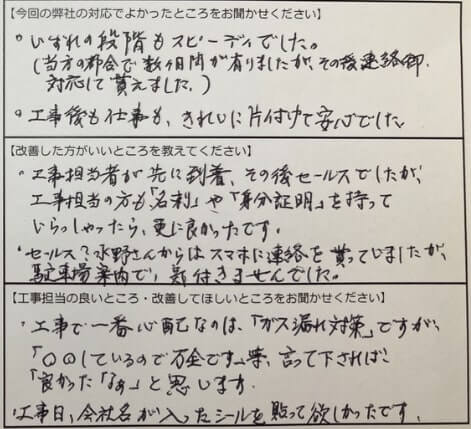 【今回の弊社の対応でよかったところをお聞かせください】
○いずれの段階もスピーディでした。
(当方の都合で数ヶ月間が有りましたが、その後連絡御
対応して貰えました。)
○工事後も仕事も、きれいに片付けて安心でした
【改善した方がいいところを教えてください】
・工事担当者が先に到着、その後セールスでしたが、
工事担当の方も「名刺」や「身分証明」を持って
いらっしゃったら、更に良かったです。
・セールス?水野さんからはスマホに連絡を貰っていましたが、
駐車場案内で、気付きませんでした。
【工事担当の良いところ・改善してほしいところをお聞かせください】
・工事で一番心配なのは、「ガス漏れ対策」ですが、
「〇〇しているので万全です」等、言って下されば、
「良かった「なぁ」と思います。
・工事日、会社名が入ったシールを貼って欲しかったです。